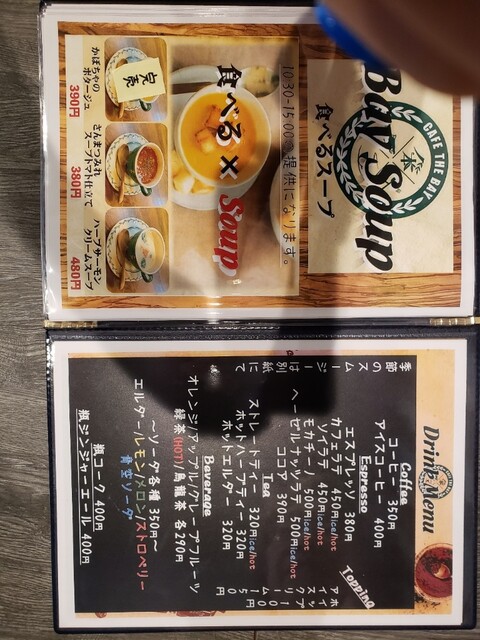 CAFE THE BAY
Bay Soup
食べるスープ
10:30-15:00の提供になります。
食べる × Soup
完売
かぼちゃの
ポタージュ
390円
さんまつみれ
スープトマト仕立て
380円
ハーブサーモン
クリームスープ
480円
Drink Menu
Coffee
コーヒー 350円
アイスコーヒー 400円
Espresso
エスプレッソ 380円
カフェラテ 450円ice/hot
ソイラテ 450円ice/hot
モカチーノ 500円ice/hot
ヘーゼルナッツラテ 500円ice/hot
ココア 390円
Tea
ストレートティー 320円ice/hot
ホットハーブティー 320円
ホットエルダー 320円
Beverage
オレンジ/アップル/グレープフルーツ
緑茶(HOT)/烏龍茶 各290円
〜ソーダ各種 350円〜
エルダー/レモン/メロン/ストロベリー
青空ソーダ
瓶コーラ 400円
瓶ジンジャーエール 400円
Topping
季節のスムージーは別紙にて